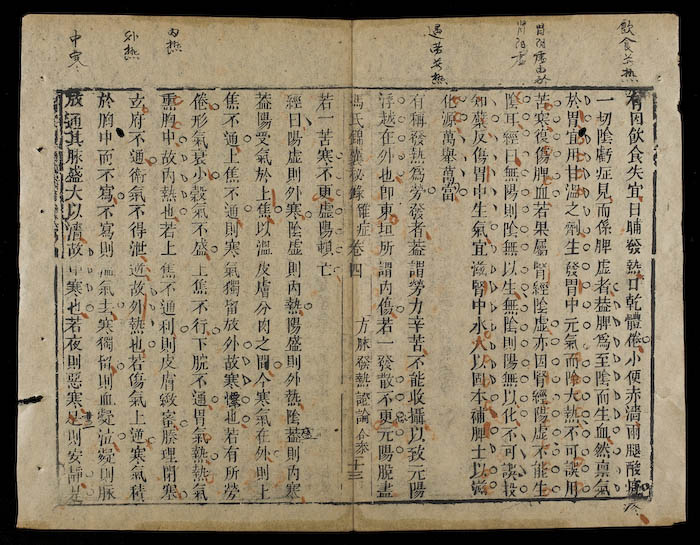 飲食勞熱
有因飲食失宜日晡發熱口乾體倦小便赤清兩腿酸痛
一切陰虧症見而係脾虛者益脾為至陰而生血然稟氣
於胃宜用甘溫之劑生發胃中元氣而除大熱不可誤用
苦寒復傷脾血若果屬腎經陰虛亦因腎經陽虛不能生
陰耳經曰無陽則陰無以生無陰則陽無以化不可誤投
知蘗反傷胃中生氣宜滋腎中水火以固本補脾土以滋
化源萬舉萬當
有稱發熱為勞發者蓋謂勞力辛苦不能收攝以致元陽
浮越在外也即東垣所謂內傷若一發散不更元陽脫盡
馮氏錦囊秘錄 雜症 卷四 方脈發熱認論合參 十三
若一苦寒不更虛陽頓亡
經曰陽虛則外寒陰虛則內熱陽盛則外熱陰盛則內寒
蓋陽受氣於上焦以溫皮膚分肉之間今寒氣在外則上
焦不通上焦不通則寒氣獨留放外故寒慄也若有所勞
倦形氣衰小穀氣不盛上焦不行下脘不通胃氣熱熱氣
內熱
熏胸中故內熱也若上焦不通利則皮膚緻密腠理閉塞
外熱
玄府不通衛氣不得泄越故外熱也若傷氣上逆寒氣積
於胸中而不寫不寫則溫氣去寒獨留則血凝泣凝則脈
中寒
放通其脈盛大以清故中寒也若夜則惡寒是則安靜是